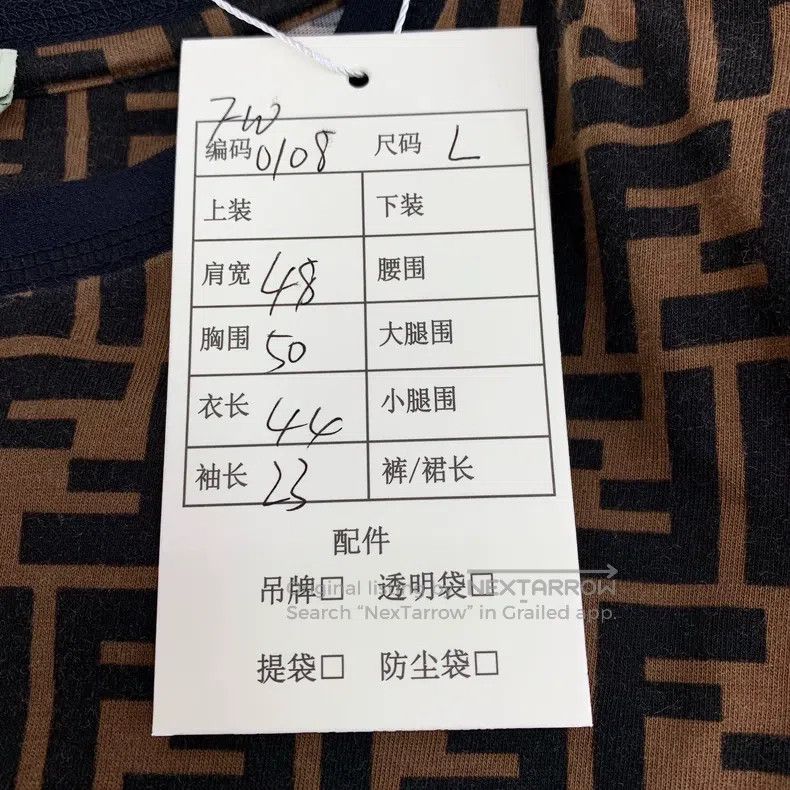 FW
编码 0108 尺码 L
上装 下装
肩宽 48 腰围
胸围 50 大腿围
衣长 44 小腿围
袖长 23 裤/裙长
配件
吊牌□ 透明袋□
Original listing on NEXTARROW
Search “NexTarrow” in Grailed app.
提袋□ 防尘袋□